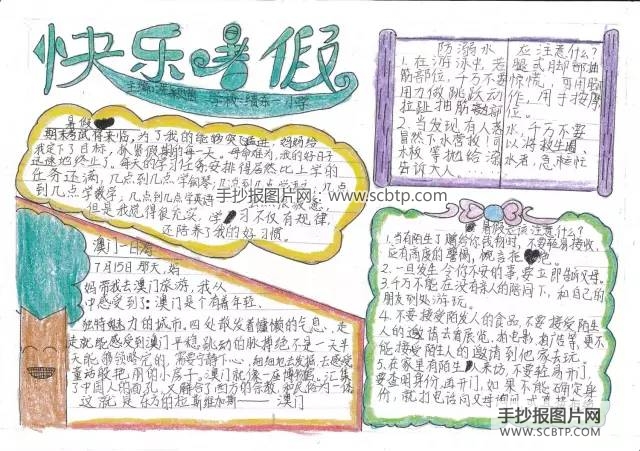 快乐暑假
主编: 学校:绩东一小学
暑假
期末考试将来临,为了我的能够突飞猛进,妈妈给
我定下了目标,抓紧假期的每一天。母命难为,我的好日子
迅速地终止了。每天的学习任务安排得居然比上学的
任务还满,几点到几点学钢琴,几点到几点学语文,几点
到几点学数学,几点到几点学英语
但是我觉得很充实,学习不仅有规律,
还陪养了我的好习惯。
澳门一日游
7月15日那天,妈
妈带我去澳门旅游,我从
中感受到了:澳门是个有着年轻、
独特魅力的城市,四处散发着慵懒的气息,走
走就能感受到澳门平稳跳动的脉搏绝不是一天半
天能够领略完的,需要宁静下心,细细地去发掘,去感受
童话般把用的小房子。澳门就像一座博物馆,汇集
了中国人的面孔,又融合了西方的宗教和民俗为一体
这就是东方的拉斯维加斯——澳门
防溺水 应注意什么?
1.在游泳中,若腿或脚部抽
筋部位,千万不要惊慌,可用脚
用力做跳跃动作,用手按摩
拉趾抽筋部位。
2.当发现有人落水,千万不要
冒然下水营救!可以将救生圈、
木板等抛给溺水者,急忙
告诉大人
暑假应该注意什么?
1.当有陌生人赠给你钱物时,不要轻易接收,
应有高度的警惕,婉言拒绝他。
2.一旦发生令你不安的事,要立即告诉父母。
3.千万不能在没有亲人的陪同下,和自己的
朋友到处游玩。
4.不要接受陌友人的食品,不要接受陌生
人的邀请去看展览、看电影、看广告等,更不
能接受陌生人的邀请到他家去玩。
5.在家里有陌生人来访,不要轻易开门,
要查明身份,再开门,如果不能确定身
份,就打电话问父母询问
手抄报图片网
www.scbtp.com
手抄报图片网
WWW.SCBTP.COM